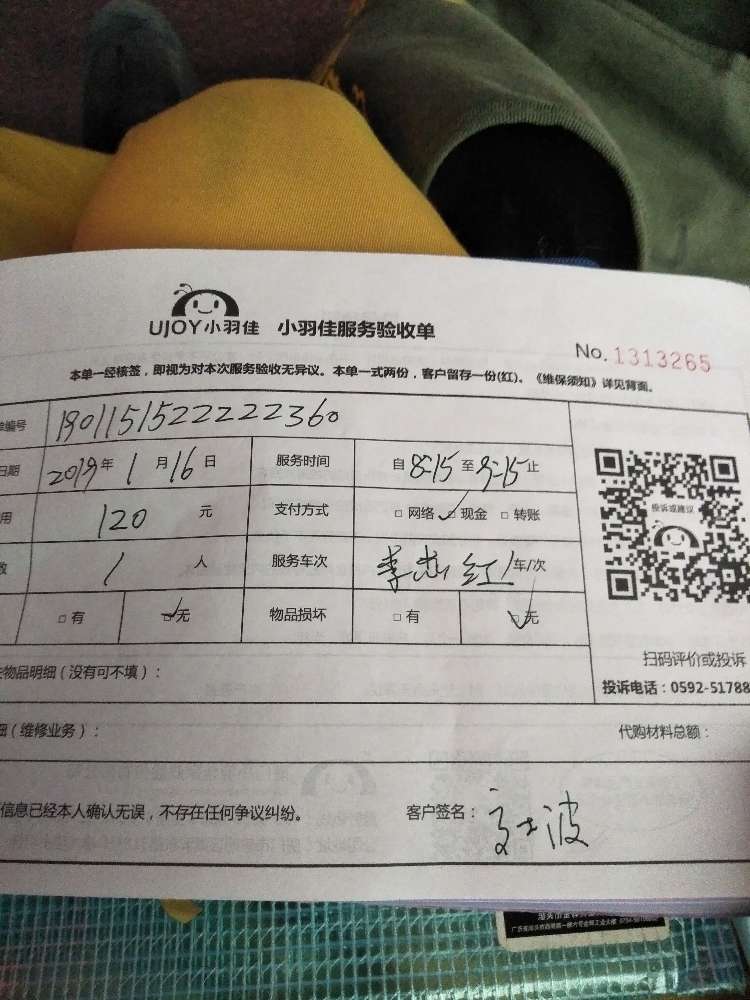 UJOY小羽佳 小羽佳服务验收单
No. 1313265
本单一经核签，即视为对本次服务验收无异议。本单一式两份，客户留存一份(红)。《维保须知》详见背面。
编号 1901151522222360
日期 2019年 1月16日 服务时间 自8:15至9:15止
用 120 元 支付方式 □ 网络 ✓□ 现金 □ 转账
数 1 人 服务车次 李 红 1车/次
□ 有 ☑无 物品损坏 □ 有 ☑无
投诉或建议
扫码评价或投诉
物品明细（没有可不填）：
投诉电话：0592-51788
细（维修业务）： 代购材料总额：
信息已经本人确认无误，不存在任何争议纠纷。 客户签名： 波